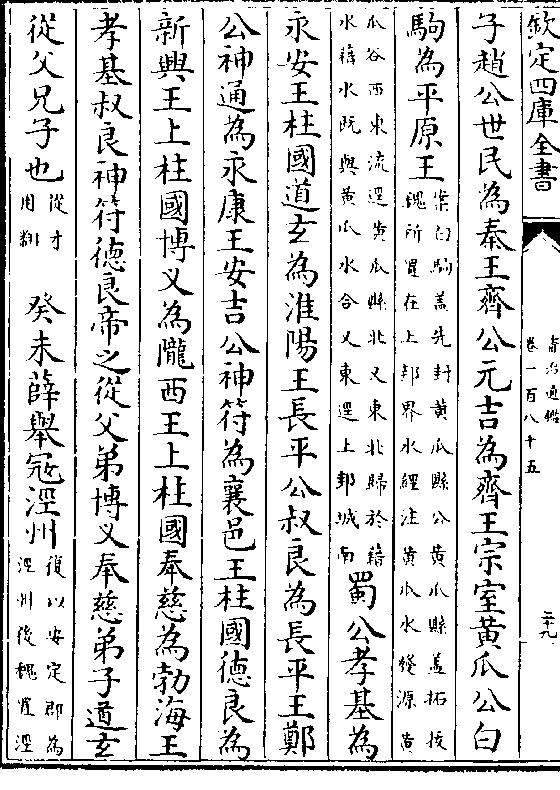 欽定四庫全書
資治通鑑
卷一百八十五
二十九
子趙公世民為秦王齊公元吉為齊王宗室黃瓜公白
駒為平原王
案白駒蓋先封黃瓜縣公黃瓜縣蓋拓拔
魏所置在上邽界水經注黃瓜水發源黃
瓜谷西東流逕黃瓜縣北又東北歸於藉
水藉水既與黃瓜水合又東逕上邽城南
蜀公孝基為
永安王柱國道玄為淮陽王長平公叔良為長平王鄭
公神通為永康王安吉公神符為襄邑王柱國德良為
新興王上柱國博乂為隴西王上柱國奉慈為勃海王
孝基叔良神符德良帝之從父弟博乂奉慈弟子道玄
從父兄子也
從才
用翻
癸未薛舉寇涇州
復以安定郡為
涇州後魏置涇